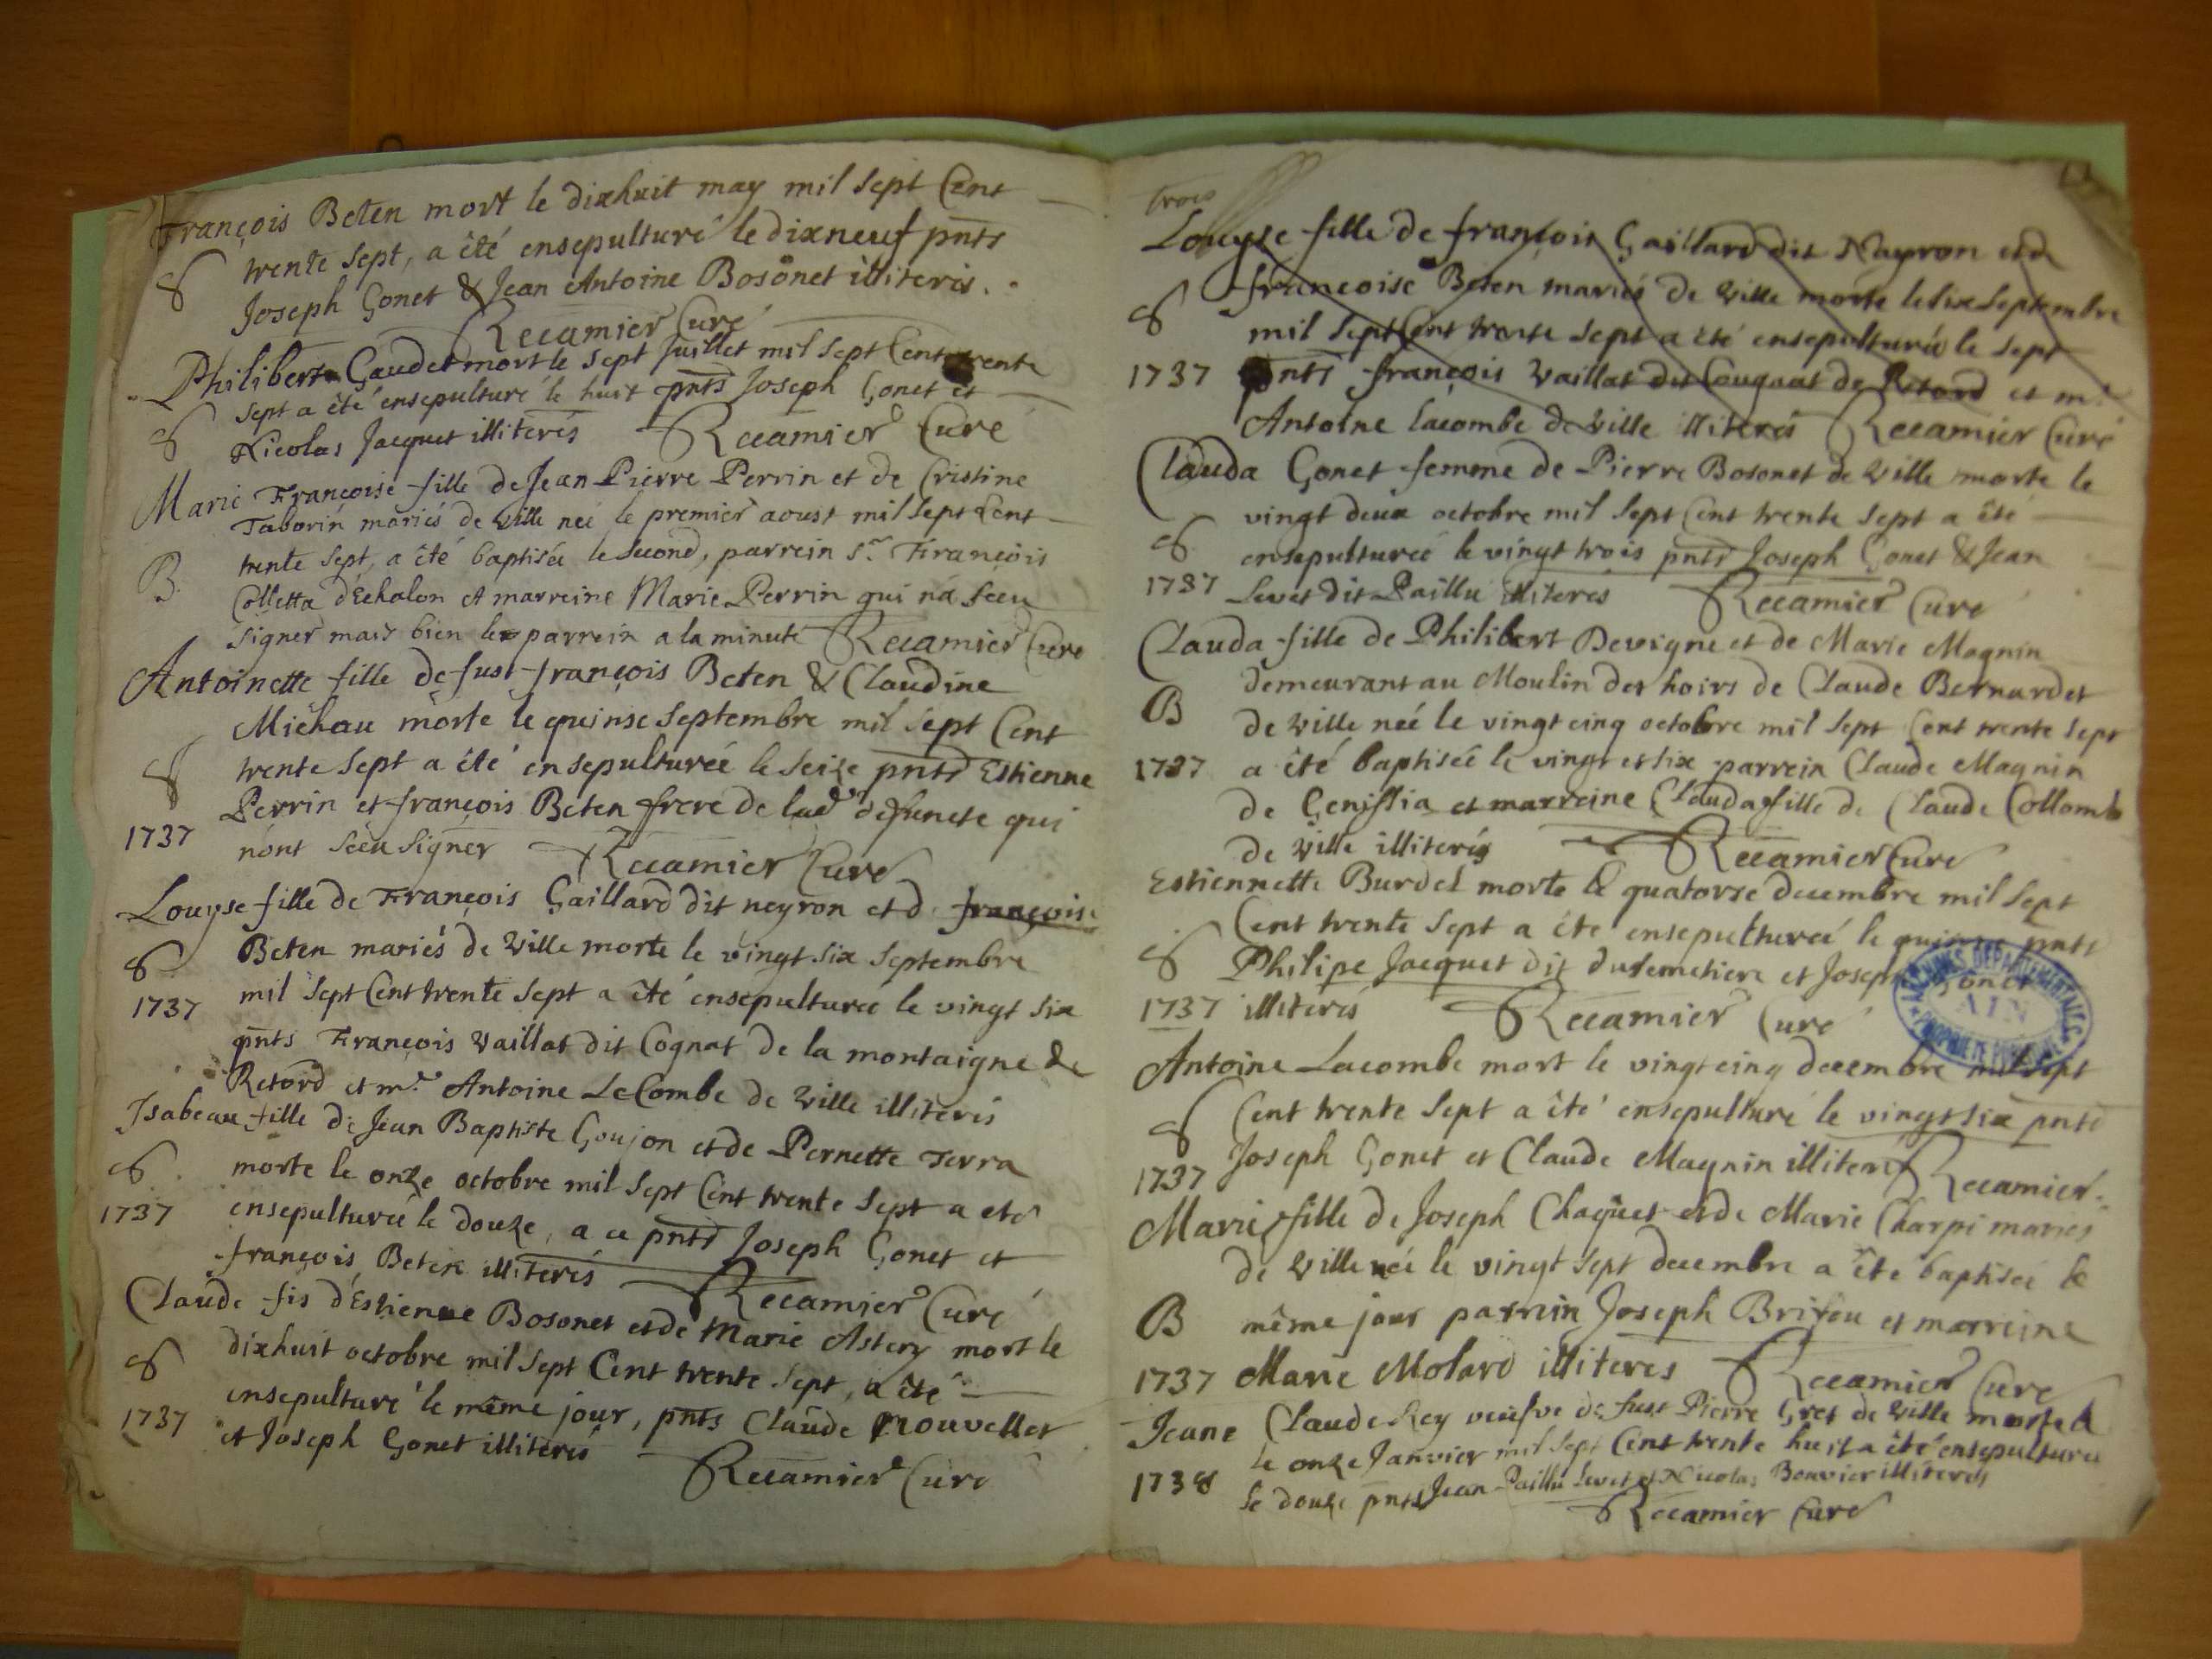 François Beten mort le dixhuit may mil sept Cent
trente sept, a êté ensepulturé le dixneuf pnts
S
Joseph Gonet & Jean Antoine Bosonet illiteris.
Recamier Curé
Philibert Gaudet mort le sept Juillet mil sept Cent trente
sept a êté ensepulturé le huit pnts Joseph Gonet et
S
Nicolas Jacquet illiterés Recamier Curé
Marie Françoise fille de Jean Pierre Perrin et de Cristine
Taborin mariés de Ville neé le premier aoust mil sept Cent
B. trente sept, a êté baptisée le second, parrein Sr. François
Colletta d'Echalon et marreine Marie Perrin qui n'a sceu
signer mais bien le parrein a la minute Recamier Curé
Antoinette fille de fust françois Beten & Claudine
Michau morte le quinse septembre mil sept Cent
S trente sept a êté ensepulturée le seize pnts Estienne
Perrin et françois Beten frere de lad. defuncte qui
1737 n'ont sceu signer Recamier Curé
Louyse fille de François Gaillard dit neyron et d. françoise
S Beten mariés de Ville morte le vingt six septembre
1737 mil sept Cent trente sept a êté ensepulturée le vingt six
pnts François Vaillat dit Cognat de la montaigne de
Retord et mre. Antoine LeCombe de Ville illiterés
Isabeau fille de Jean Baptiste Goujon et de Pernette Terra
S morte le onze octobre mil sept Cent trente sept a eté
1737 ensepulturée le douze, a ce pnts Joseph Gonet et
françois Beten illiterés Recamier Curé
Claude fis d'Estienne Bosonet et de Marie Astery mort le
S dixhuit octobre mil sept Cent trente sept, a êté
ensepulturé le même jour, pnts Claude Nouvellet
1737 et Joseph Gonet illiterés
Recamier Curé
trois
Louyse fille de françois Gaillard dit Nayron et d
françoise Beten mariés de Ville morte le six septembre
S
mil sept Cent trente sept a êté ensepulturée le sept
1737 pnts françois Vaillat dit Cougnat de Retord et mre
Antoine Lacombe de Ville illiterés Recamier Curé
Clauda Gonet femme de Pierre Bosonet de Ville morte le
vingt deux octobre mil sept Cent trente sept a êté
S ensepulturée le vingt trois pnts Joseph Gonet & Jean
1737 Levet dit Paillu illiterés Recamier Curé
Clauda fille de Philibert Devigne et de Marie Magnin
demeurant au Moulin des hoirs de Claude Bernardet
B de Ville neé le vingt cinq octobre mil sept Cent trente sept
1737 a êté baptisée le vingt et six parrein Claude Magnin
de Genissia et marreine Clauda fille de Claude Collomb
de Ville illiterés Recamier Curé
Estiennette Burdet morte le quatorze decembre mil sept
Cent trente sept a été ensepulturée le quinse pnts
S Philipe Jacquet dit dusemetiere et Joseph Gonet
1737 illiterés Recamier Curé
ARCHIVES DEPARTEMENTALES
AIN
PROPRIETE PUBLIQUE
Antoine Lacombe mort le vingt cinq decembre mil sept
S Cent trente sept a êté ensepulturé le vingt six pnts
1737 Joseph Gonet et Claude Magnin illiterés Recamier
Marie fille de Joseph Chaquet et de Marie Charpi mariés
de Ville neé le vingt sept decembre a êté baptisée le
B même jour parrein Joseph Brison et marreine
1737 Marie Molard illiteres Recamier Curé
Jeane Claude Rey veufve de fust Pierre Gret de Ville morte
le onze Janvier mil sept Cent trente huit a êté ensepulturée
1738 le douze pnts Jean Paillu Levet et Nicolas Bouvier illiterés
Recamier Curé